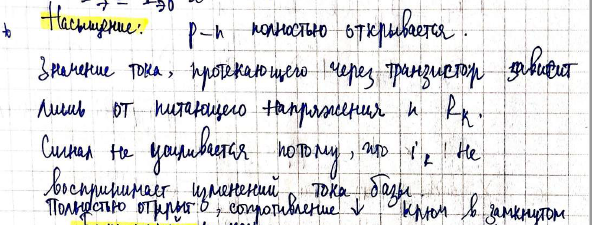 Насыщение: p-n полностью открывается.
Значение тока, протекающего через транзистор зависит
лишь от питающего напряжения и Rк.
Сигнал не усиливается потому, что iк не
воспринимает изменений тока базы.
Полностью открыт, сопротивление ↓ ключ в замкнутом